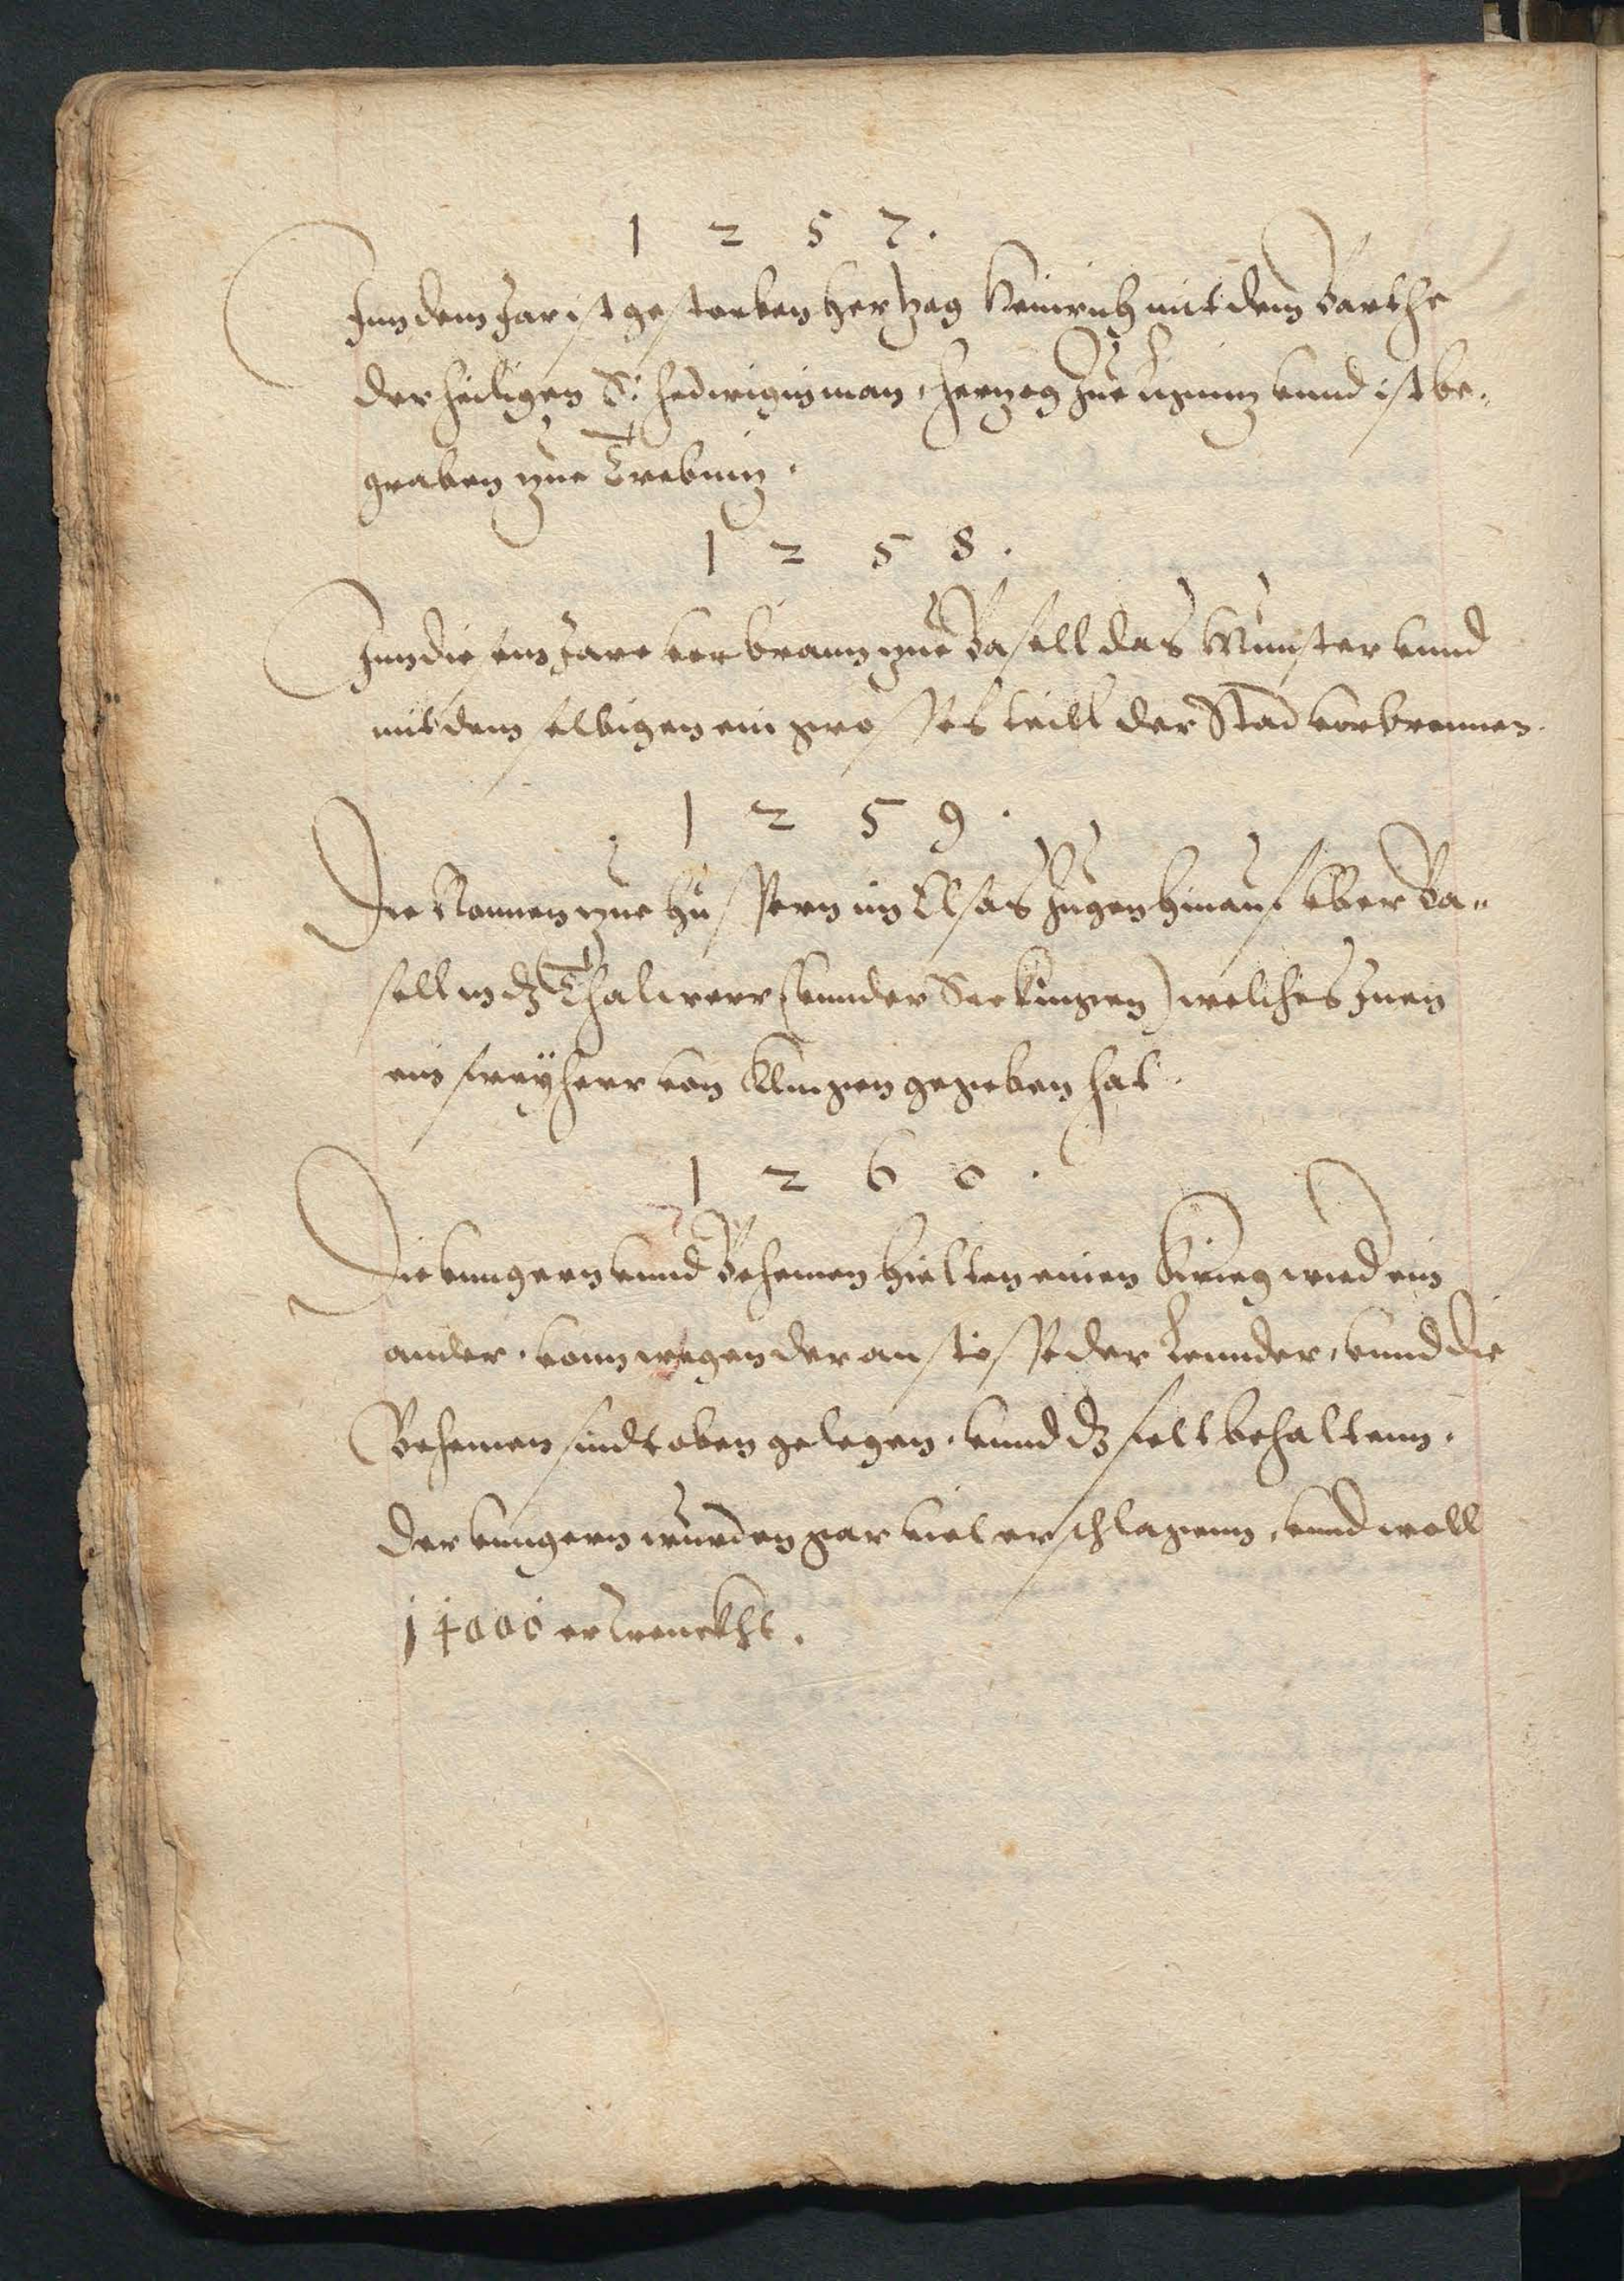 1 2 5 7.
Inn dem Jar ist gestorben Hertzog Heinrich mit dem Barthe
der heiligen S: Hedwigis man, Hertzog zue Lignitz vnnd ist be¬
graben zue Trebnitz.
1 2 5 8.
Inn diesem Jare verbrann zue Basell das Munster vnnd
mit dem selbigen ein grosses teill der Stad vorbrennen.
1 2 5 9.
Die Nonnen zue Hüssern im Elsas zugen hinauf vber Ba¬
sell in dz Thal werr (vnnder Seckingen) welches Inen
ein freyherr von Klingen gegeben hat.
1 2 6 0.
Die vungern vnnd Behemen hielten einen Krieg wied ein
ander. vonn wegen der anstösse der Lennder, vnnd die
Behemen sindt oben gelegen. vnnd dz felt behaltenn.
der vungern wurden gar viel erschlagenn, vnnd woll
14000 ertrenckht.